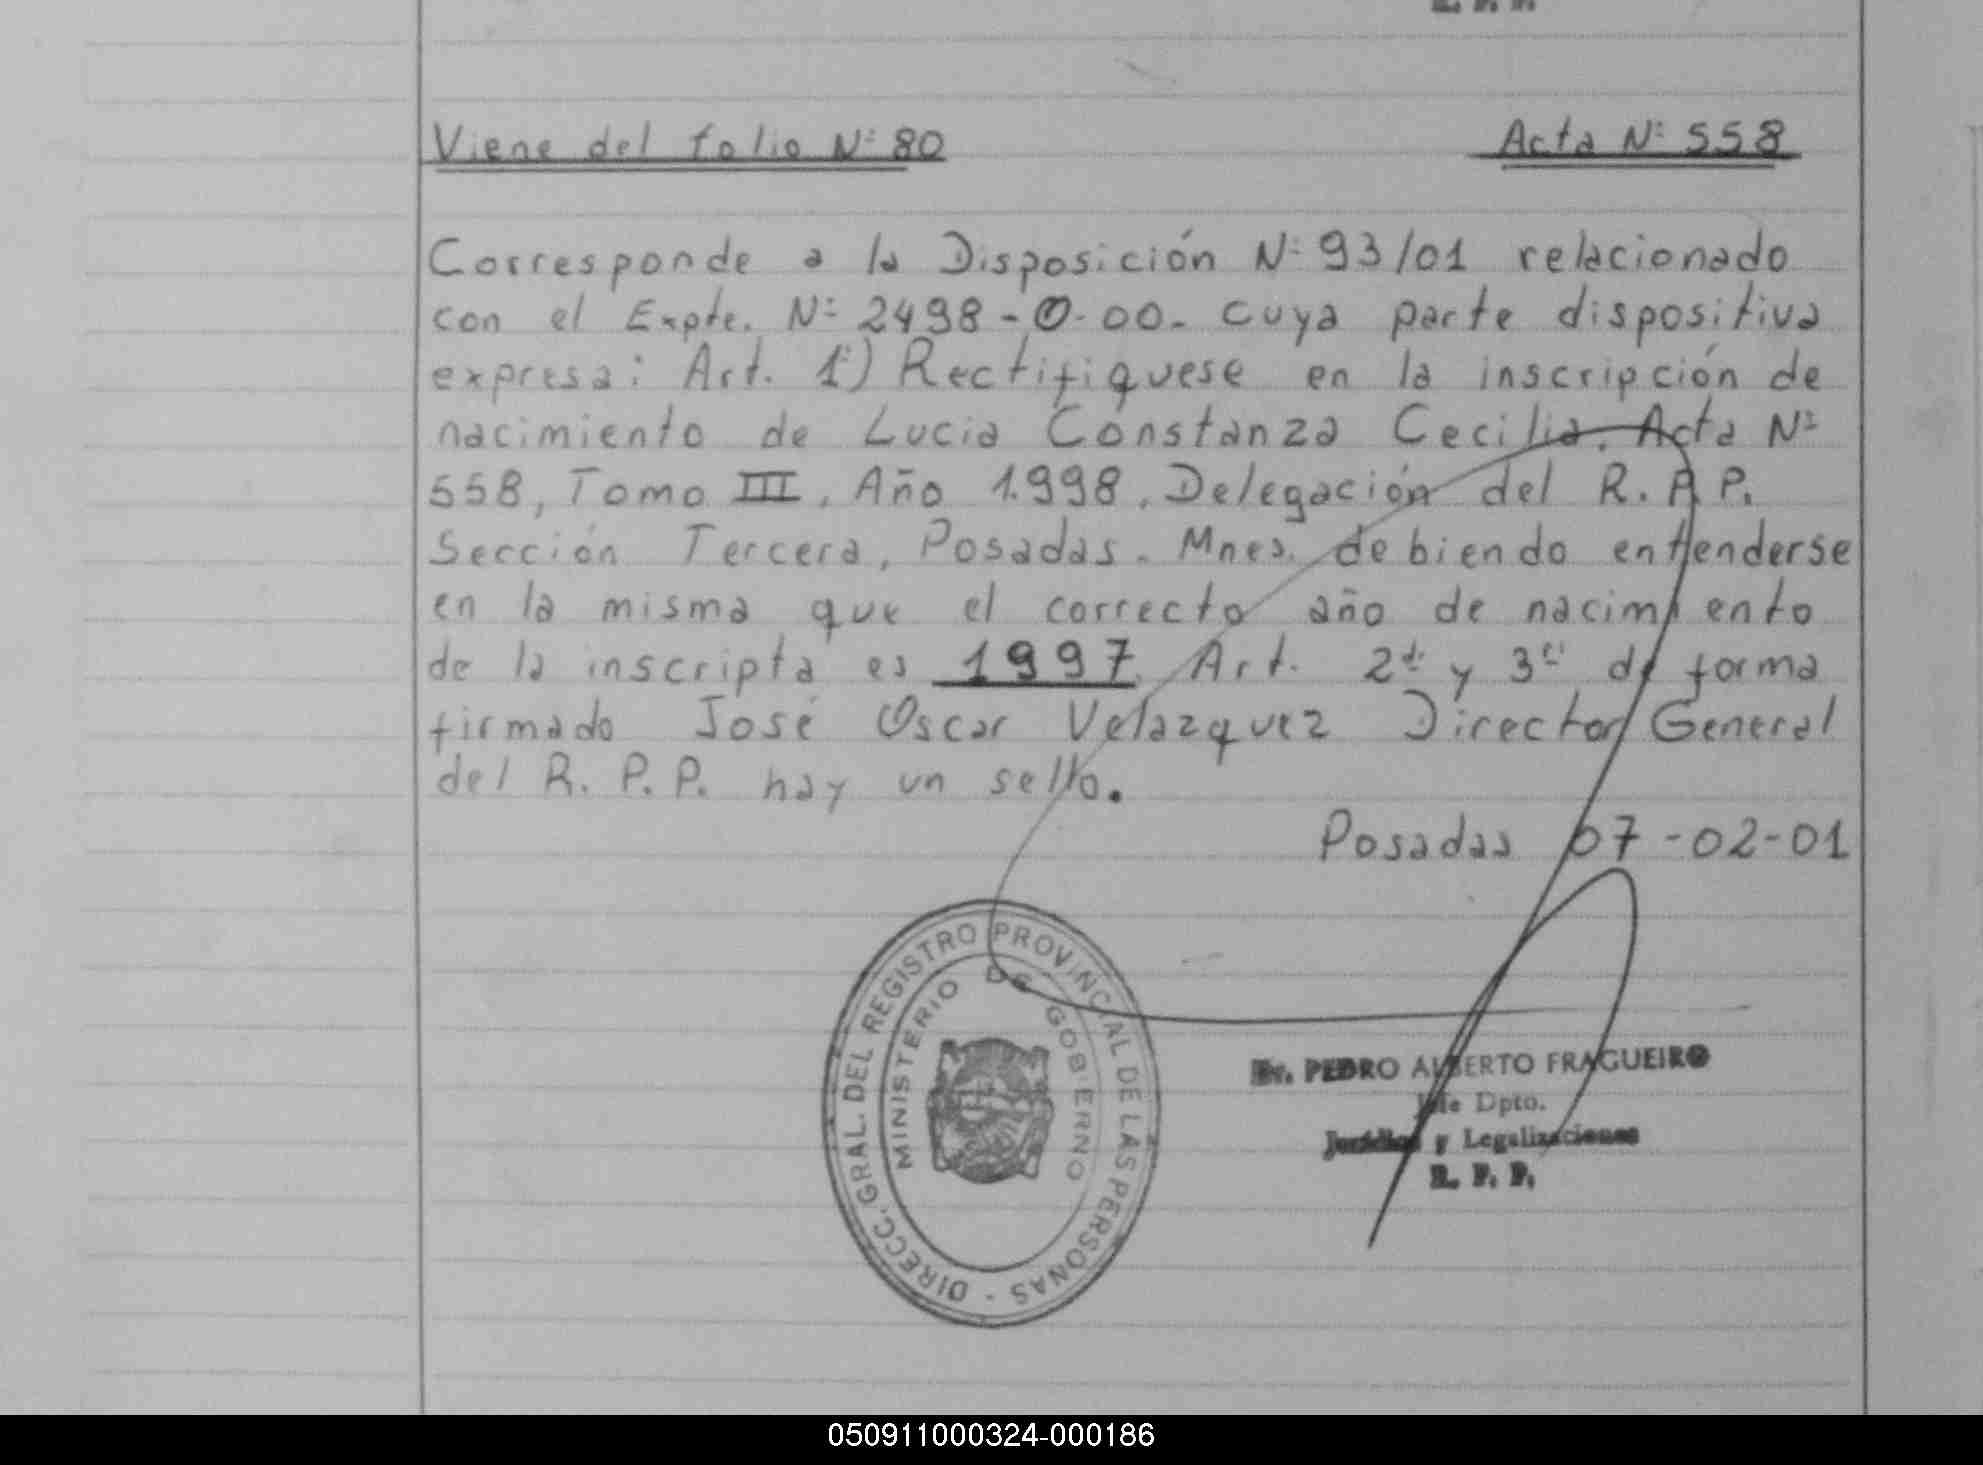 Viene del folio N: 80
Acta N: 558
Corresponde a la Disposición N: 93/01 relacionado
con el Expte. N: 2498-0-00. cuya parte dispositiva
expresa: Art. 1º) Rectifiquese en la inscripción de
nacimiento de Lucia Constanza Cecilia. Acta Nº
558, Tomo III, Año 1.998, Delegación del R.P.P.
Sección Tercera, Posadas. Mnes. debiendo entenderse
en la misma que el correcto año de nacimiento
de la inscripta es 1997 Art. 2do y 3er de forma
firmado José Oscar Velazquez Director General
del R.P.P. hay un sello.
Posadas 07-02-01
DIRECC. GRAL. DEL REGISTRO PROVINCIAL DE LAS PERSONAS -
MINISTERIO DE GOBIERNO
Dr. PEDRO ALBERTO FRAGUEIRO
Jefe Dpto.
Jurídico y Legalizaciones
R. P. P.
050911000324-000186